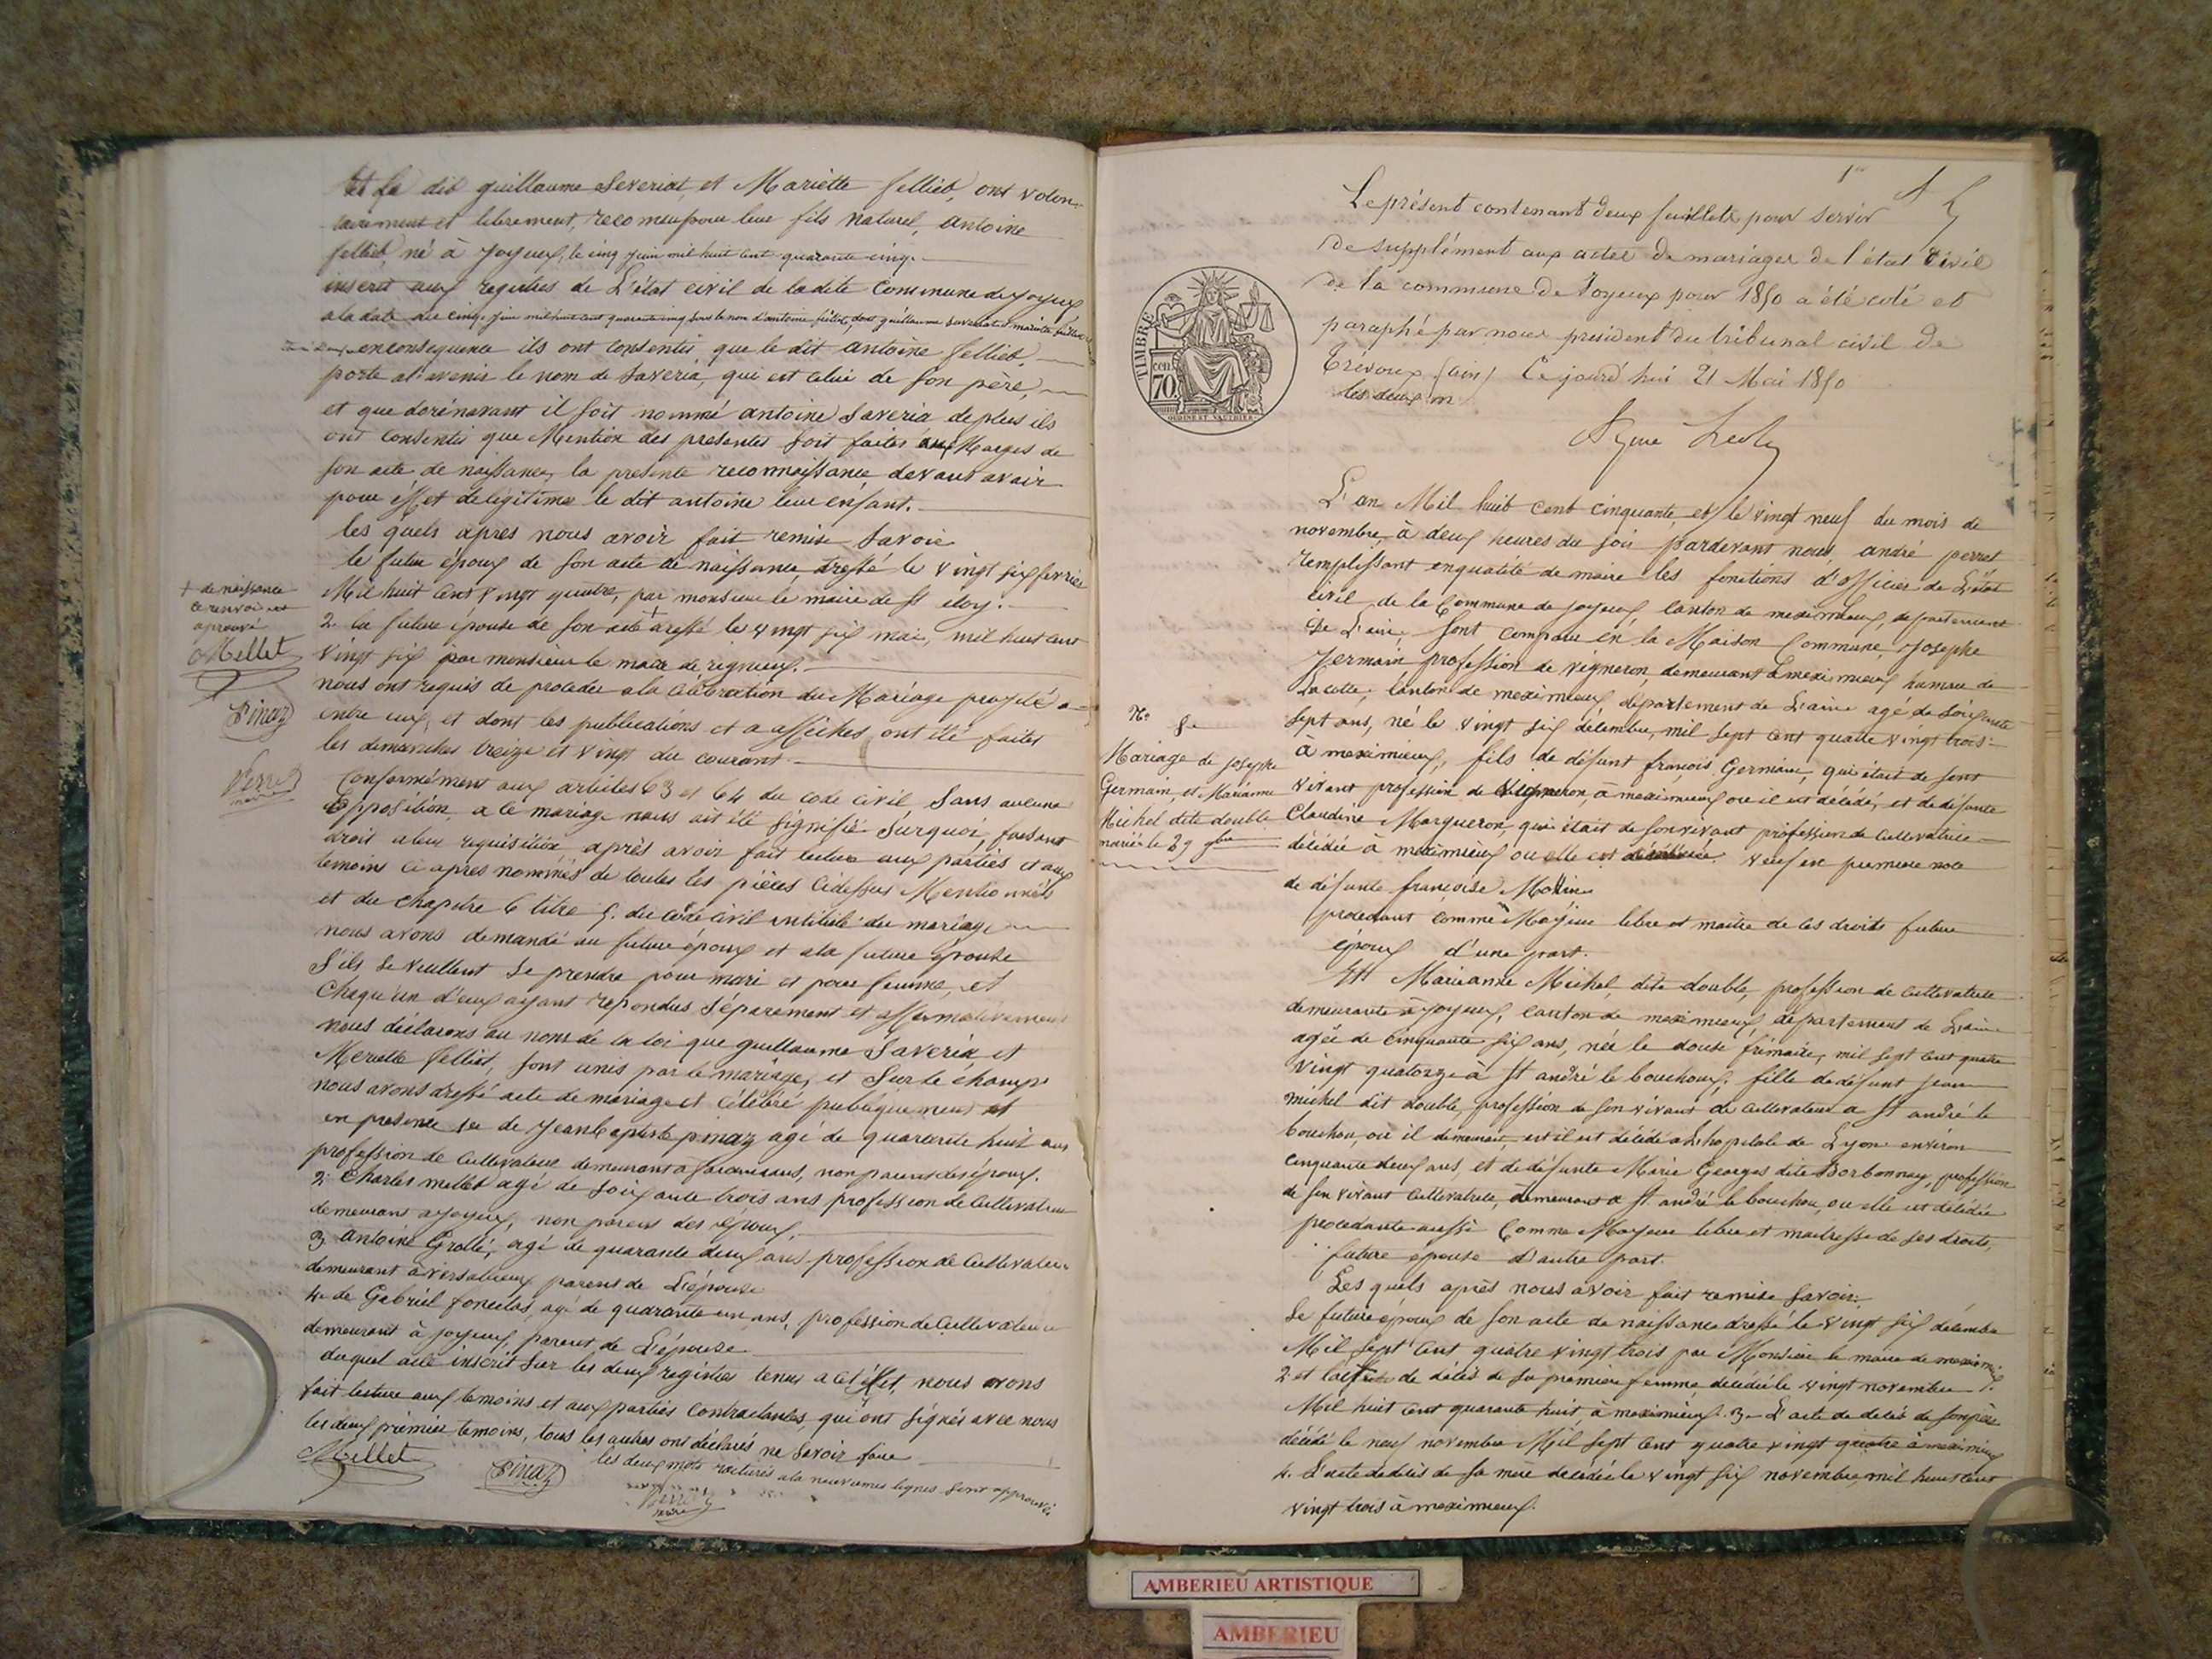 Et le dit guillaume Saveriat, et Mariette felliet, ont volon-
tairement et librement, reconnu pour leur fils naturel, antoine
felliet, né à joyeux, le cinq juin mil huit cent quarante cinq.
inscrit aux registres de L'état civil de ladite Commune de joyeux
a la date du cinq juin mil huit cent quarante cinq sous le nom d'antoine felliet,
enconsequence ils ont consentis que le dit antoine felliet,
porte al'avenir le nom de Saveria, qui est celui de son père,
et que dorénavant il soit nommé antoine Saveria de plus ils
ont consentis que Mention des presentes soit faites aux Marges de
son acte de naissance, la presente reconnaissance devant avoir
pour effet delégitimer le dit antoine leur enfant.
les quels apres nous avoir fait remise Savoir
le futur époux de son acte de naissance, dressé le vingt six fevrier
Mil huit cent vingt quatre, par monsieur le maire de st éloy.
+ de naissance
ce renvoi est
aprouvé
Mellet
Pinaz
Perret
maire
2. la future épouse de son acte + dressé le vingt six mai, mil huit cent
vingt six par monsieur le maire de rigneux.
nous ont requis de proceder a la célébration du Mariage projeté
entre eux, et dont les publications et a affiches ont été faites
les dimanches treize et vingt du courant.
Conformément aux articles 63 et 64 du code civil Sans aucune
opposition a ce mariage nous ait été signifié Surquoi, faisant
droit a leur requisition après avoir fait lecture aux parties et aux
temoins ci apres nommés de toutes les pièces cidessus Mentionnés
et du chapitre 6 titre 5. du code civil intitulé du mariage
nous avons demandé au future époux et ala future épouse
S'ils se veullent se prendre pour mari et pour femme, et
Chaqu'un d'eux ayant repondus séparement et affirmativement
nous déclarons au nom de la loi que guillaume Saveria et
Mariette felliet, sont unis par le mariage, et Sur le champ
nous avons dressé acte de mariage et célébré publiquement et
en presence 1er de Jean baptiste pinaz agé de quarante huit ans
profession de Cultivateur demeurant à , non parent des époux.
2. Charles mellet agé de soixante trois ans profession de Cultivateur
demeurant a joyeux, non parent des époux,
3. Antoine Grollé, agé de quarante deux ans profession de Cultivateur
demeurant à versalieux parent de L'épouse
4. de Gabriel , agé de quarante un ans, profession de Cultivateur
demeurant à joyeux, parent de L'épouse
duquel acte inscrit sur les deux registres tenus a cet effet, nous avons
fait lecture aux temoins et aux parties Contractantes, qui ont signés avec nous
les deux prémier temoins, tous les autres ont déclarés ne savoir faire
les deux mots raturés ala neuviemes lignes sont approuvés
Mellet
Pinaz
Perret
maire
1er
Le présent contenant deux feuillets pour servir
de supplément aux actes de mariages de l'état civil
de la commune de Joyeux pour 1850 a été coté et
paraphé par nous president du tribunal civil de
Trévoux (ain) Ce jourd'hui 21 Mai 1850
les deux m
TIMBRE
cen
70
L'an Mil huit cent cinquante, et le vingt neuf du mois de
novembre, à deux heures du soir pardevant nous andré perret
remplissant en qualité de maire les fonctions d'officier de L'état
civil de la Commune de joyeux canton de meximieux, departement
De L'ain. Sont comparu en la Maison Commune, Josephe
Germain profession de vigneron demeurant à meximieux hameau de
Lacotte, canton de meximieux, département de L'ain agé de soixante
sept ans, né le vingt six décembre, mil sept cent quatre vingt trois
à meximieux, fils de défunt françois Germain, qui était de sont
vivant profession de Vigneron, à meximieux ou il est décédé, et de défunte
Claudine Marqueron, qui était de son vivant profession de Cultivatrice
décédée à meximieux ou elle est veuf en premiere noce
de défunte françoise Mollin
procédant comme Majeur libre et maitre de ces droits future
époux d'une part.
N° 8
Mariage de josephe
Germain, et Marianne
Michel dite double
mariés le 29 9bre
Et Marianne Michel, dite double, profession de cultivatrice
demeurante à joyeux, canton de meximieux, département de L'ain
agée de cinquante six ans, née le douze frimaire, mil sept cent quatre
vingt quatorze à St andré le bouchoux, fille de défunt jean
michel dit double, profession de son vivant de cultivateur a St andré le
bouchou, ou il demeurait, et il est décédé a L'hopitale de Lyon environ
cinquante deux ans, et de défunte Marie Georges dite Borbonnay, profession
de son vivant cultivatrice, demeurant a St. andré le bouchou, ou elle est décédée
procedante aussi Comme Majeure libre et maitresse de ses droits,
future épouse d'autre part.
Les quels après nous avoir fait remise savoir.
Le future époux de son acte de naissance dressé le vingt six décembre
Mil sept cent quatre vingt trois par Monsieur le maire de meximieux
2. et l'acte de décès de sa premiere femme décédée le vingt novembre
Mil huit cent quarante huit à meximieux. 3. L'acte de décès de son père
décédé le neuf novembre Mil sept cent quatre vingt quatre à meximieux
4. L'acte de décès de sa mère decedée le vingt six novembre, mil huit cent
vingt trois à meximieux.
AMBERIEU ARTISTIQUE
AMBERIEU